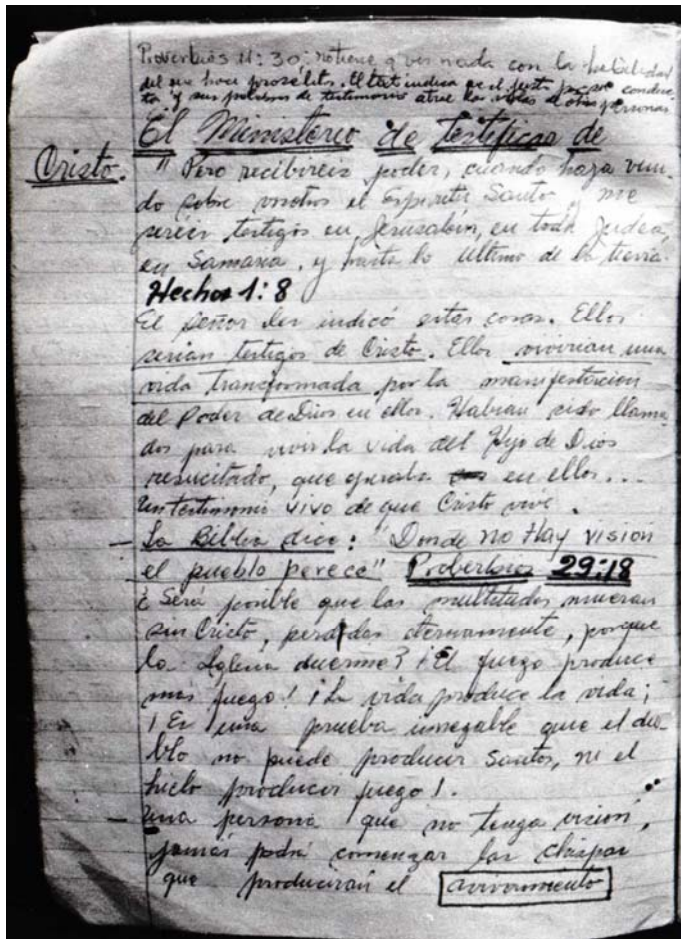 Proverbios 11:30; no tiene q ver nada con la habilidad
del que hace prosélitos. El text indica que el justo por su conduc
ta y sus palabras de testimonio atrae las vidas de otras personas
El Ministerio de testificar de
Cristo.
" Pero recibireis poder, cuando haya veni-
do sobre vosotros el Espiritu Santo y me
sereis testigos en Jerusalén, en toda Judea,
en Samaria, y hasta lo ultimo de la tierra.
Hechos 1:8
El Señor les indicó estas cosas. Ellos
serian testigos de Cristo. Ellos vivirian una
vida transformada por la manifestacion
del Poder de Dios en ellos. Habian sido llama
dos para vivir la vida del Hijo de Dios
resucitado, que operaba en ellos...
Un testimonio vivo de que Cristo vive.
- La Biblia dice: "Donde no Hay vision
el pueblo perece" Proberbios 29:18
¿Será posible que las multitudes mueran
sin Cristo, perdidas eternamente, porque
la Iglesia duerme? ¡El fuego produce
más fuego! ¡La vida produce la vida;
¡Es una prueba innegable que el dia-
blo no puede producir Santos, ni el
hielo producir fuego!.
- Una persona que no tenga visión,
jamás podrá comenzar las chispas
que produciran el avivamiento